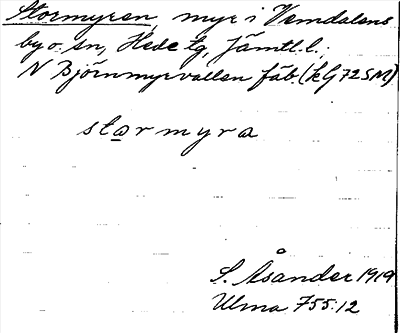 Stormyren, myr i Vemdalens
by o. sn, Hede tg, Jämtl. l.
N Björnmyrvallen fäb. (k G 72 SM)
starmyra
S. Åsander 1919
Ulma 755:12